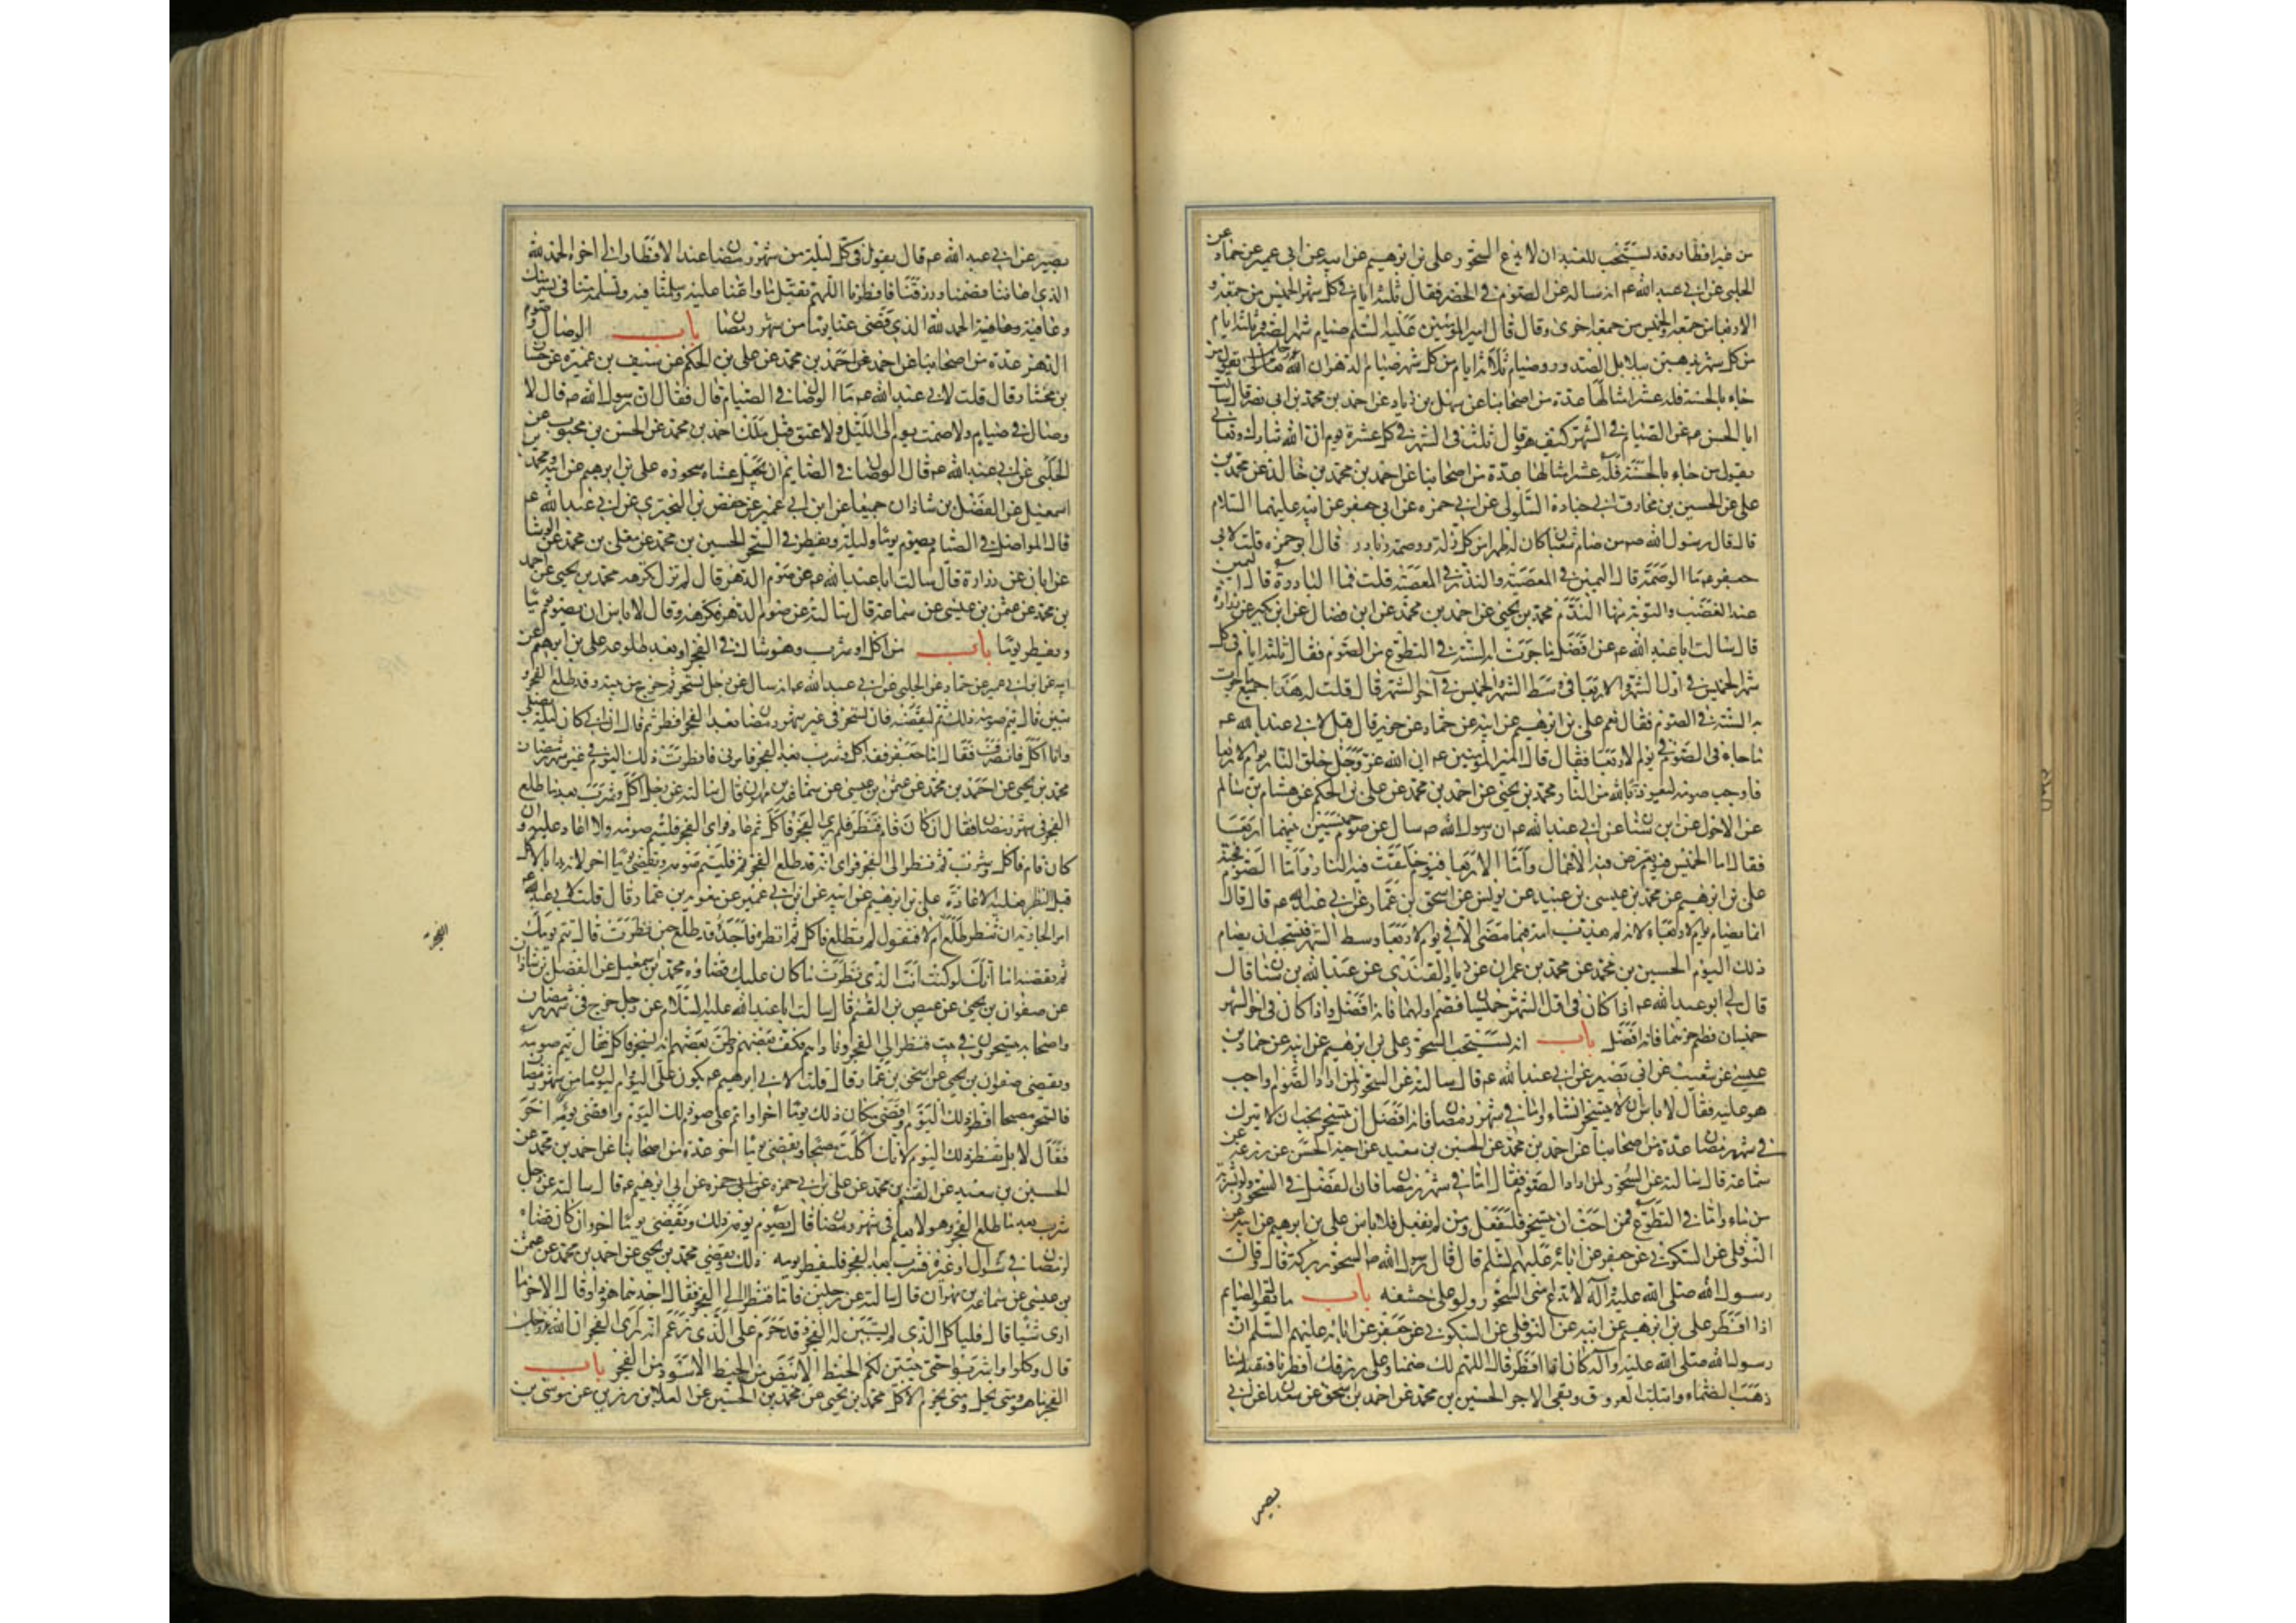 من غير افطار وقد يستحب للعبد ان لا يدع السحور علي بن ابرهيم عن ابيه عن ابن ابي عمير عن حماد عن
الحلبي عن ابي عبد الله عم انه سأله عن الصوم في الحضر فقال ثلثة ايام في كل شهر الخميس من جمعة و
الاربعا من جمعة والخميس من جمعة اخرى وقال قال امير المؤمنين عليه السلم صيام شهر الصبر وثلثة ايام
من كل شهر يذهبن ببلابل الصدور وصيام ثلاثة ايام من كل شهر صيام الدهر ان الله يقول من
جاء بالحسنة فله عشر امثالها عدة من اصحابنا عن سهل بن زياد عن احمد بن محمد بن ابي نصر قال سالت
ابا الحسن عم عن الصيام في الشهر كيف هو قال ثلث في الشهر في كل عشرة يوم ان الله تبارك وتعالى
يقول من جاء بالحسنة فله عشر امثالها عدة من اصحابنا عن احمد بن محمد بن خالد عن محمد بن
علي عن الحسين بن مخارق ابي جنادة السلولي عن ابي حمزه عن ابي جعفر عن ابيه عليهما السلام
قال قال رسول الله صم من صام شعبان كان له طهرا من كل زلة ووصمة وبادرة قال ابو حمزه قلت لابي
جعفر عم ما الوصمة قال اليمين في المعصية والنذر في المعصية قلت فما البادرة قال اليمين
عند الغضب والتوبة منها الندم محمد بن يحيى عن احمد بن محمد عن ابن فضال عن ابن بكير عن زرارة
قال سالت ابا عبد الله عم عن افضل ما جرت به السنة في التطوع من الصوم فقال ثلثة ايام في كل
شهر الخميس في اول الشهر والاربعا في وسط الشهر والخميس في آخر الشهر قال قلت له هذا جميع ما جرت
به السنة في الصوم فقال نعم علي بن ابرهيم عن ابيه عن حماد عن حريز قال قيل لابي عبد الله عم
ما جاء في الصوم في يوم الاربعا فقال قال امير المؤمنين عم ان الله عز وجل خلق النار يوم الاربعا
فاوجب صومه ليعوذ بالله من النار محمد بن يحيى عن احمد بن محمد عن علي بن الحكم عن هشام بن سالم
عن الاحول عن ابن سنان عن ابي عبد الله عم ان رسول الله صم سال عن صوم خميسين بينهما اربعا
فقال اما الخميس فيوم تعرض فيه الاعمال واما الاربعا فيوم خلقت فيه النار واما الصوم فجنة
علي بن ابرهيم عن محمد بن عيسى بن عبيد عن يونس عن اسحق بن عمار عن ابي عبد الله عم قال قال
انما يصام يوم الاربعاء لانه لم يعذب امة فيما مضى الا في يوم الاربعا وسط الشهر فيستحب ان يصام
ذلك اليوم الحسين بن محمد عن محمد بن عمران عن زياد القندي عن عبد الله بن سنان قال
قال لي ابو عبد الله عم اذا كان في اول الشهر خميسان فصم اولهما فانه افضل واذا كان في اخر الشهر
خميسان فصم اخرهما فانه افضل باب انه يستحب السحور علي بن ابرهيم عن ابيه عن حماد بن
عيسى عن شعيب عن ابي بصير عن ابي عبد الله عم قال سالته عن السحور لمن اراد الصوم واجب
هو عليه فقال لا باس ان لا يتسحر ان شاء واما في شهر رمضان فانه افضل ان يتسحر يحب ان لا يترك
في شهر رمضان عدة من اصحابنا عن احمد بن محمد عن الحسين بن سعيد عن اخيه الحسن عن زرعة عن
سماعة قال سالته عن السحور لمن اراد الصوم فقال اما في شهر رمضان فان الفضل في السحور ولو بشربة
من ماء واما في التطوع فمن احب ان يتسحر فليفعل ومن لم يفعل فلا باس علي بن ابرهيم عن ابيه عن
النوفلي عن السكوني عن جعفر عن آبائه عليهم السلم قال قال رسول الله صم السحور بركة قال وقال
رسول الله صلى الله عليه وآله لا تدع امتي السحور ولو على حشفة باب ما يقول الصايم
اذا افطر علي بن ابرهيم عن ابيه عن النوفلي عن السكوني عن جعفر عن آبائه عليهم السلم ان
رسول الله صلى الله عليه وآله كان اذا افطر قال اللهم لك صمنا وعلى رزقك افطرنا فتقبله منا
ذهب الظماء وابتلت العروق وبقي الاجر الحسين بن محمد عن احمد بن اسحق عن سعدان عن ابي
بصير
بصير عن ابي عبد الله عم قال يقول في كل ليلة من شهر رمضان عند الافطار الى اخره الحمد لله
الذي اعاننا فصمنا ورزقنا فافطرنا اللهم تقبل منا واعنا عليه وسلمنا فيه وتسلمه منا في يسر منك
وعافية الحمد لله الذي قضى عنا يوما من شهر رمضان باب الوصال وصوم
الدهر عدة من اصحابنا عن احمد بن محمد عن علي بن الحكم عن سيف بن عميره عن حسان
بن مختار قال قلت لابي عبد الله عم ما الوصال في الصيام قال فقال ان رسول الله صم قال لا
وصال في صيام ولا صمت يوم الى الليل ولا عتق قبل ملك احمد بن محمد عن الحسن بن محبوب عن
الحلبي عن ابي عبد الله عم قال الوصال في الصيام ان يجعل عشاه سحوره علي بن ابرهيم عن ابيه ومحمد بن
اسمعيل عن الفضل بن شاذان جميعا عن ابن ابي عمير عن حفص بن البختري عن ابي عبد الله عم
قال المواصل في الصيام يصوم يوما وليلة ويفطر في السحر الحسين بن محمد عن معلى بن محمد عن الوشا
عن ابان عن زرارة قال سالت ابا عبد الله عم عن صوم الدهر قال لم نزل نكرهه محمد بن يحيى عن احمد
بن محمد عن عثمن بن عيسى عن سماعة قال سالته عن صوم الدهر فكرهه وقال لا باس ان يصوم يوما
ويفطر يوما باب من اكل او شرب وهو شاك في الفجر او بعد طلوعه علي بن ابرهيم عن
ابيه عن ابن ابي عمير عن حماد عن الحلبي عن ابي عبد الله عم انه سال عن رجل تسحر ثم خرج من بيته وقد طلع الفجر و
تبين قال يتم صومه ذلك ثم ليقضه فان تسحر في غير شهر رمضان بعد الفجر افطر ثم قال ان ابي كان ليلة يصلي
وانا آكل فانصرف فقال اما جعفر فقد اكل وشرب بعد الفجر فامرني فافطرت ذلك اليوم في غير شهر رمضان
محمد بن يحيى عن احمد بن محمد عن عثمن بن عيسى عن سماعة بن مهران قال سالته عن رجل اكل وشرب بعد ما طلع
الفجر في شهر رمضان فقال ان كان قام فنظر فلم ير الفجر فاكل ثم عاد فراى الفجر فليتم صومه ولا اعادة عليه وان
كان قام فاكل وشرب ثم نظر الى الفجر فراى انه قد طلع الفجر فليتم صومه ويقضي يوما اخر لانه بدا بالاكل
قبل النظر فعليه الاعادة علي بن ابرهيم عن ابيه عن ابن ابي عمير عن معوية بن عمار قال قلت لابي عبد الله عم
امر الجارية ان تنظر طلع ام لا فتقول لم يطلع فاكل ثم انظره فاجده قد طلع حين نظرت قال تتم يومك
ثم تقضيه اما انك لو كنت انت الذي نظرت ما كان عليك قضاؤه محمد بن اسمعيل عن الفضل بن شاذان
الفجر
عن صفوان بن يحيى عن عيص بن القسم قال سالت ابا عبد الله عليه السلام عن رجل خرج في شهر رمضان
واصحابه يتسحرون في بيت فنظر الى الفجر فناداهم فكف بعضهم وظن بعضهم انه يسخر فاكل فقال يتم صومه
ويقضي صفوان بن يحيى عن اسحق بن عمار قال قلت لابي ابرهيم عم يكون علي اليوم واليومان من شهر رمضان
فاتسحر مصبحا افطر ذلك اليوم واقضي مكان ذلك يوما اخر او اتم على صوم ذلك اليوم واقضي يوما آخر
فقال لا بل تفطر ذلك اليوم لانك اكلت مصبحا وتقضي يوما اخر عدة من اصحابنا عن احمد بن محمد عن
الحسين بن سعيد عن القسم بن محمد عن علي بن ابي حمزه عن ابي ابرهيم عم قال سالته عن رجل
شرب بعد ما طلع الفجر وهو لا يعلم في شهر رمضان قال يصوم يومه ذلك ويقضي يوما اخر وان كان قضاء
لرمضان في شوال او غيره فشرب بعد الفجر فليفطر يومه ذلك ويقضي محمد بن يحيى عن احمد بن محمد عن عثمن
بن عيسى عن سماعة بن مهران قال سالته عن رجلين قاما فنظرا الى الفجر فقال احدهما هوذا وقال الاخر ما
ارى شيئا قال فلياكل الذي لم يتبين له الفجر وقد حرم على الذي زعم انه راى الفجر ان الله عز وجل
قال وكلوا واشربوا حتى يتبين لكم الخيط الابيض من الخيط الاسود من الفجر باب
الفجر ما هو ومتى يحل ومتى يحرم الاكل محمد بن يحيى عن محمد بن الحسين عن العلا بن رزين عن موسى بن